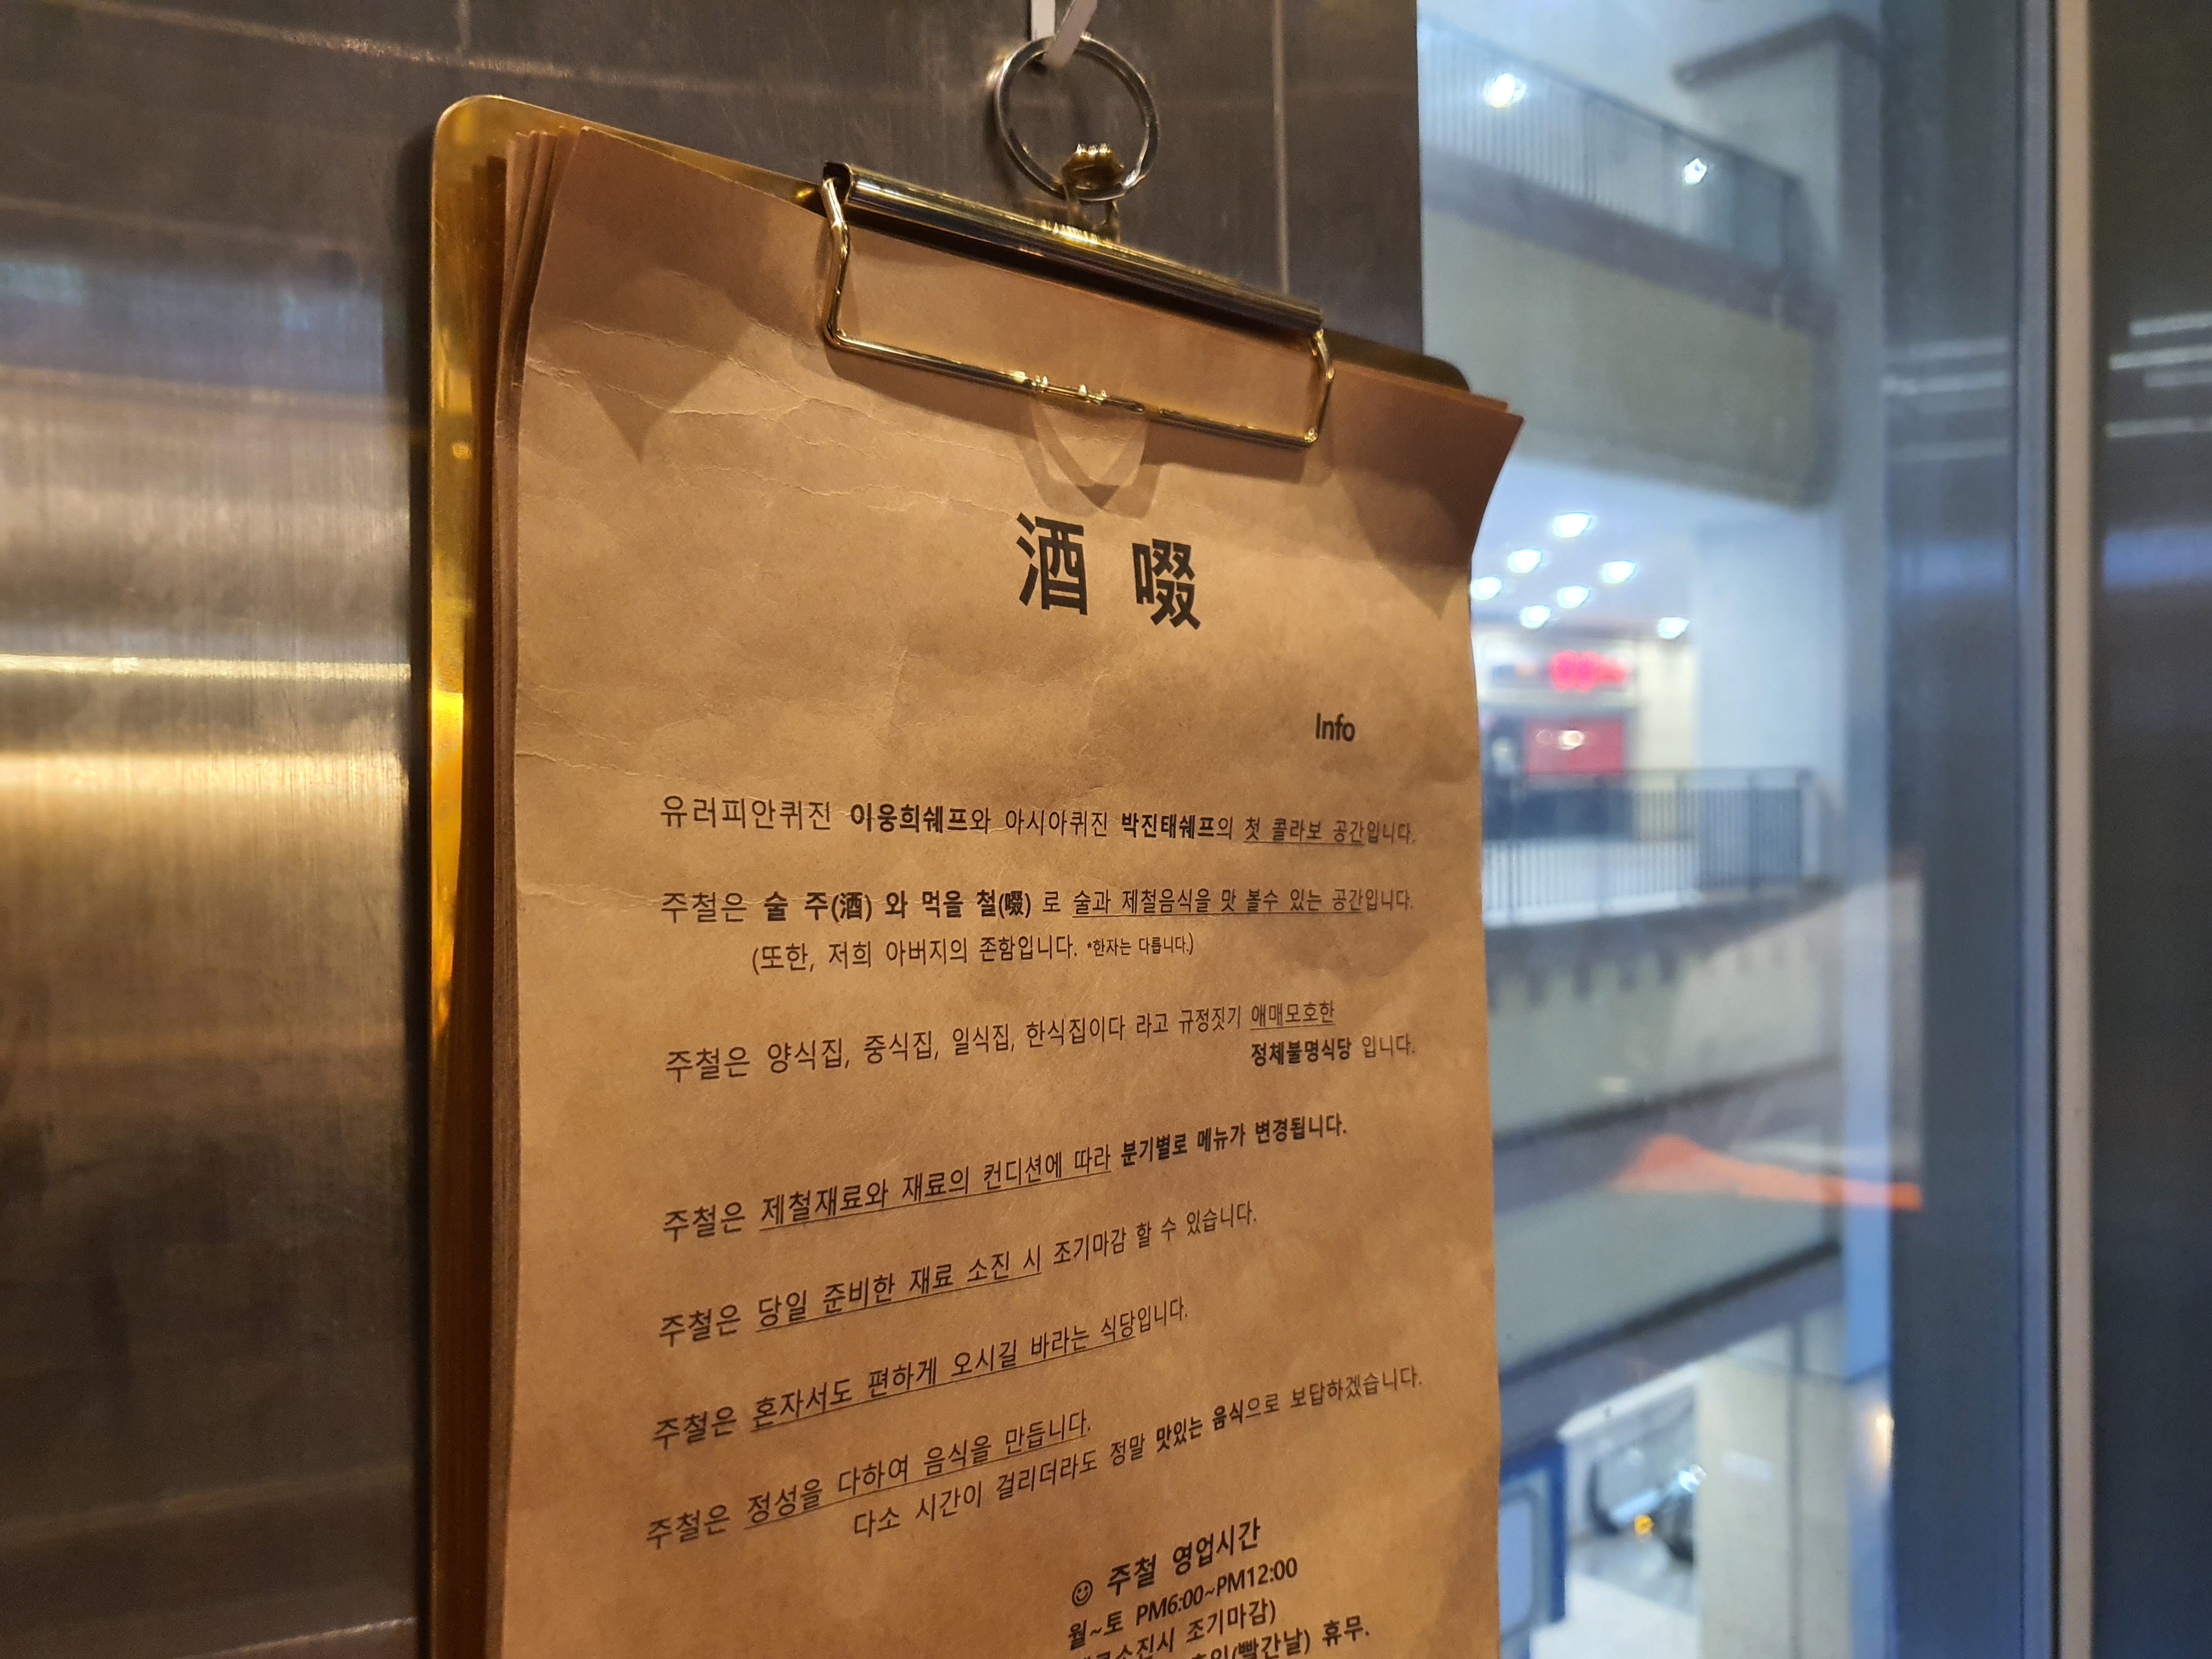 酒 啜
Info
유러피안퀴진 이웅희쉐프와 아시아퀴진 박진태쉐프의 첫 콜라보 공간입니다.
주철은 술 주(酒) 와 먹을 철(啜) 로 술과 제철음식을 맛 볼수 있는 공간입니다.
(또한, 저희 아버지의 존함입니다. *한자는 다릅니다.)
주철은 양식집, 중식집, 일식집, 한식집이다 라고 규정짓기 애매모호한
정체불명식당 입니다.
주철은 제철재료와 재료의 컨디션에 따라 분기별로 메뉴가 변경됩니다.
주철은 당일 준비한 재료 소진 시 조기마감 할 수 있습니다.
주철은 혼자서도 편하게 오시길 바라는 식당입니다.
주철은 정성을 다하여 음식을 만듭니다.
다소 시간이 걸리더라도 정말 맛있는 음식으로 보답하겠습니다.
☺ 주철 영업시간
월~토 PM6:00~PM12:00
조기마감)
(빨간날) 휴무.